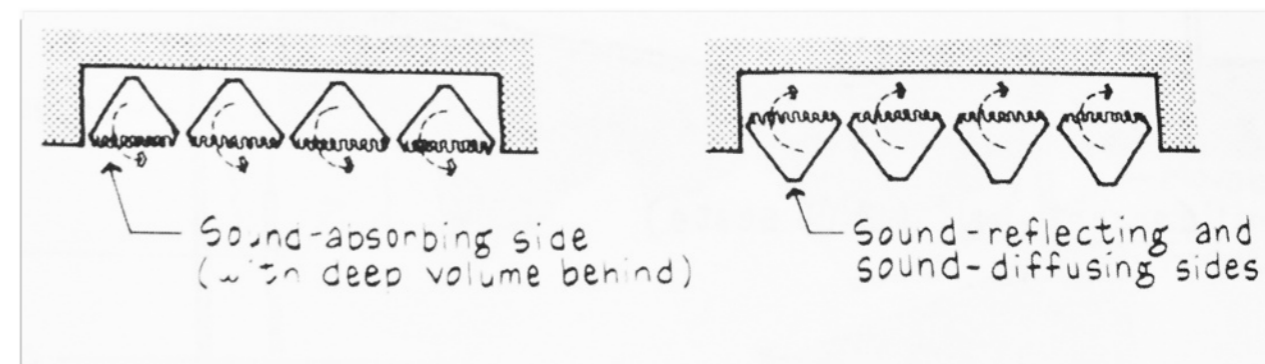 Sound-absorbing side
(with deep volume behind)
Sound-reflecting and
sound-diffusing sides